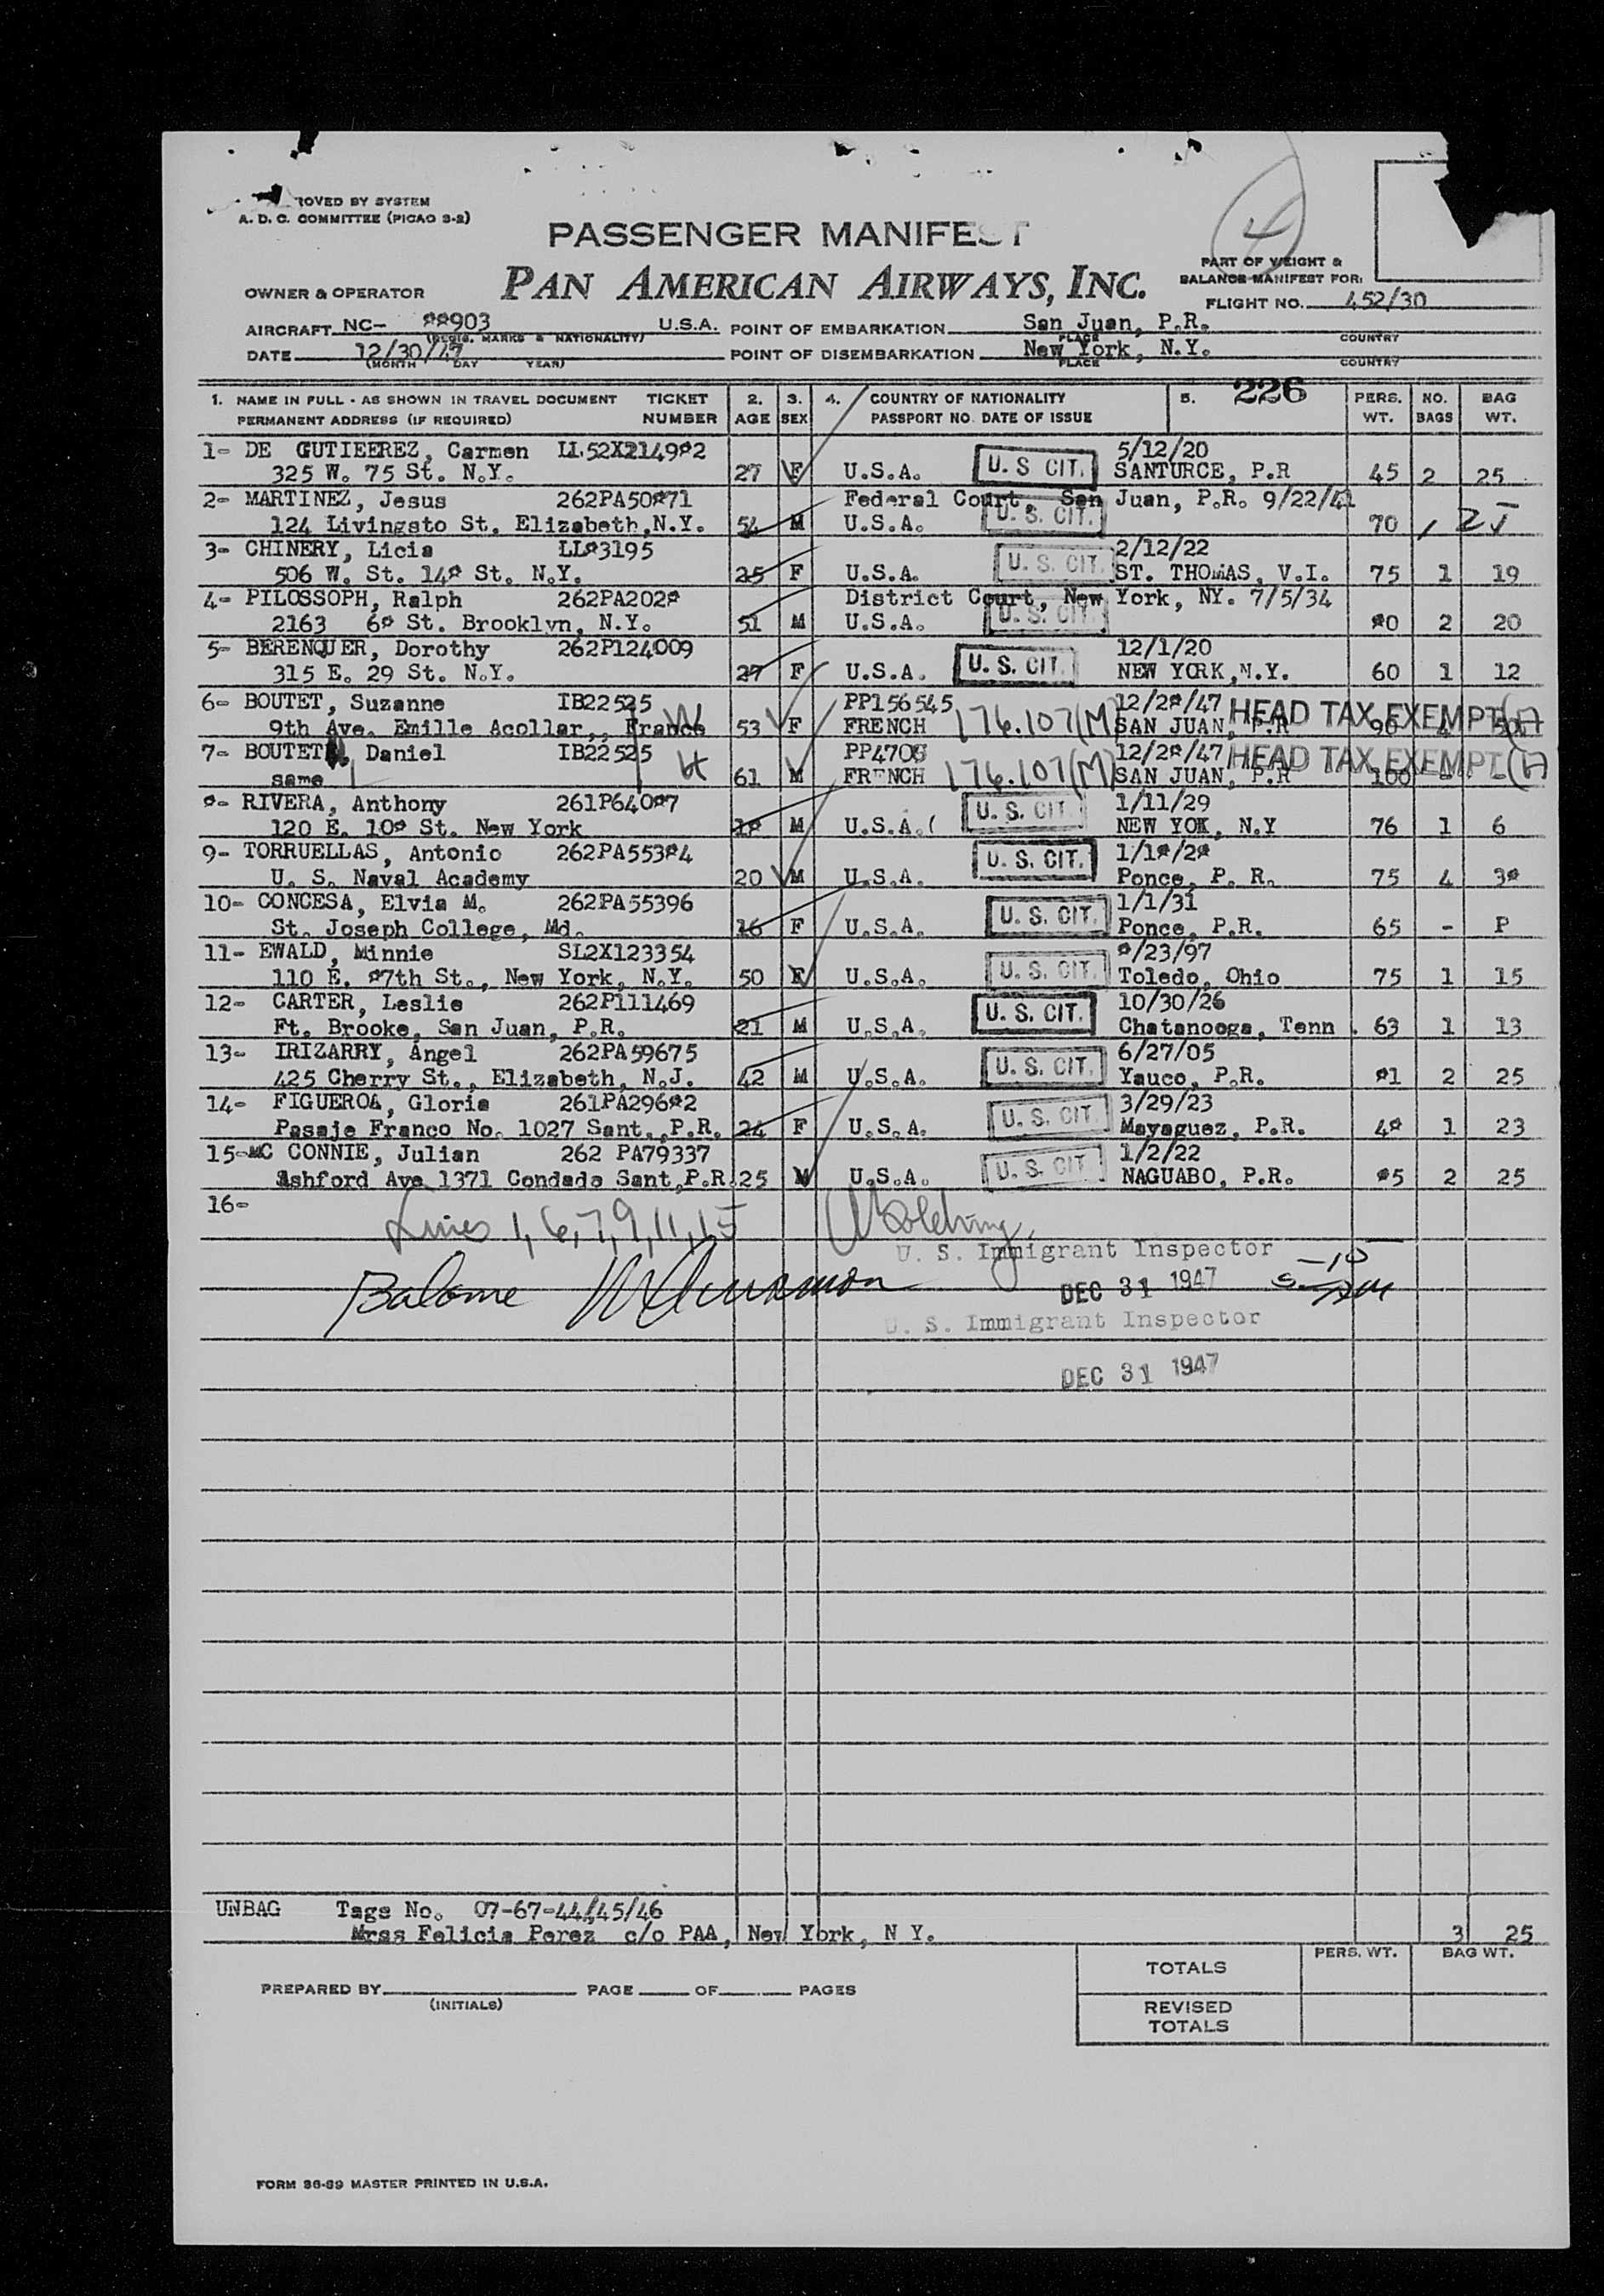 ROVED BY SYSTEM
A. D. C. COMMITTEE (PICAO 3-2)
PASSENGER MANIFEST
4
PART OF WEIGHT &
BALANCE MANIFEST FOR:
OWNER & OPERATOR PAN AMERICAN AIRWAYS, INC.
FLIGHT NO. 452/30
AIRCRAFT NC- 88903 U.S.A. POINT OF EMBARKATION San Juan, P.R.
(REGIS. MARKS & NATIONALITY) PLACE COUNTRY
DATE 12/30/47 POINT OF DISEMBARKATION New York, N.Y.
(MONTH DAY YEAR) PLACE COUNTRY
1. NAME IN FULL - AS SHOWN IN TRAVEL DOCUMENT TICKET 2. 3. 4. COUNTRY OF NATIONALITY 5. 226 PERS. NO. BAG
PERMANENT ADDRESS (IF REQUIRED) NUMBER AGE SEX PASSPORT NO. DATE OF ISSUE WT. BAGS WT.
1- DE GUTIEEREZ, Carmen LL52X214982 5/12/20
325 W. 75 St. N.Y. 27 F U.S.A. U. S CIT. SANTURCE, P.R 45 2 25
2- MARTINEZ, Jesus 262PA50871 Federal Court, San Juan, P.R. 9/22/41
124 Livingsto St. Elizabeth,N.Y. 54 M U.S.A. U. S. CIT. 70 1 25
3- CHINERY, Licia LL83195 2/12/22
506 W. St. 148 St. N.Y. 25 F U.S.A. U. S. CIT. ST. THOMAS, V.I. 75 1 19
4- PILOSSOPH, Ralph 262PA2028 District Court, New York, NY. 7/5/34
2163 68 St. Brooklyn, N.Y. 51 M U.S.A. U. S. CIT. 80 2 20
5- BERENQUER, Dorothy 262P124009 12/1/20
315 E. 29 St. N.Y. 27 F U.S.A. U. S. CIT. NEW YORK,N.Y. 60 1 12
6- BOUTET, Suzanne IB22525 PP156545 12/28/47 HEAD TAX EXEMPT
9th Ave. Emille Acollar,, France W 53 F FRENCH 176.107(M) SAN JUAN, P.R 90 4
7- BOUTET, Daniel IB22525 H PP4708 12/28/47 HEAD TAX EXEMPT
same 61 M FRENCH 176.107(M) SAN JUAN, P.R 100 - -
8- RIVERA, Anthony 261P64087 1/11/29
120 E. 108 St. New York 18 M U.S.A.( U. S. CIT. NEW YOK, N.Y 76 1 6
9- TORRUELLAS, Antonio 262PA55384 1/18/28
U. S. Naval Academy 20 M U.S.A. U. S. CIT. Ponce, P. R. 75 4 38
10- CONCESA, Elvia M. 262PA55396 1/1/31
St. Joseph College, Md. 16 F U.S.A. U. S. CIT. Ponce, P.R. 65 - P
11- EWALD, Minnie SL2X123354 8/23/97
110 E. 87th St., New York, N.Y. 50 F U.S.A. U. S. CIT. Toledo, Ohio 75 1 15
12- CARTER, Leslie 262P111469 10/30/26
Ft. Brooke, San Juan, P.R. 21 M U.S.A. U. S. CIT. Chatanooga, Tenn . 63 1 13
13- IRIZARRY, Angel 262PA59675 6/27/05
425 Cherry St., Elizabeth, N.J. 42 M U.S.A. U. S. CIT. Yauco, P.R. 81 2 25
14- FIGUEROA, Gloria 261PA29682 3/29/23
Pasaje Franco No. 1027 Sant.,P.R. 24 F U.S.A. U. S. CIT. Mayaguez, P.R. 48 1 23
15-MC CONNIE, Julian 262 PA79337 1/2/22
Ashford Ave 1371 Condado Sant,P.R. 25 M U.S.A. U. S. CIT NAGUABO, P.R. 85 2 25
16-
Lines 1,6,7,9,11,15
U. S. Immigrant Inspector
Balance
DEC 31 1947
U. S. Immigrant Inspector
DEC 31 1947
UNBAG Tags No. 07-67-44/45/46
Mrss Felicia Perez c/o PAA, New York, N Y. 3 25
PERS. WT. BAG WT.
TOTALS
PREPARED BY PAGE OF PAGES
(INITIALS)
REVISED
TOTALS
FORM 36-89 MASTER PRINTED IN U.S.A.